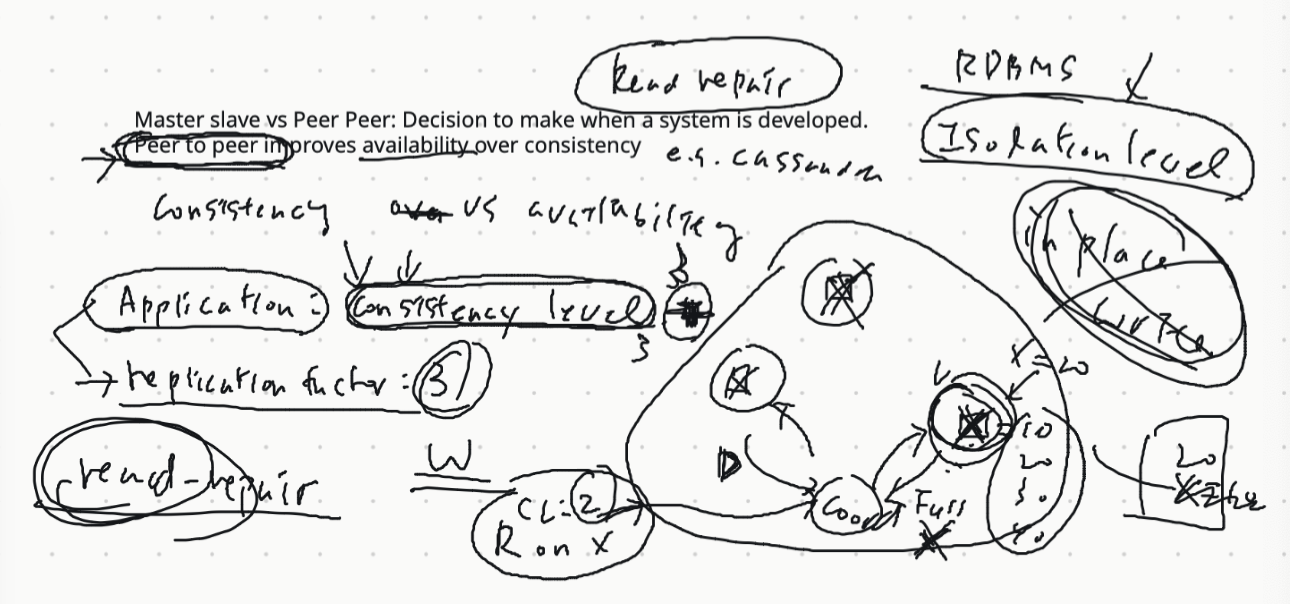 Read repair
RDBMS
Master slave vs Peer Peer: Decision to make when a system is developed.
Peer to peer improves availability over consistency
e.g. cassandra
Isolation level
Consistency vs availability
in place
Application: Consistency level
3
x = 20
replication factor: 3
10
20
30
40
20
read-repair
W
CL: 2
R on X
Coord